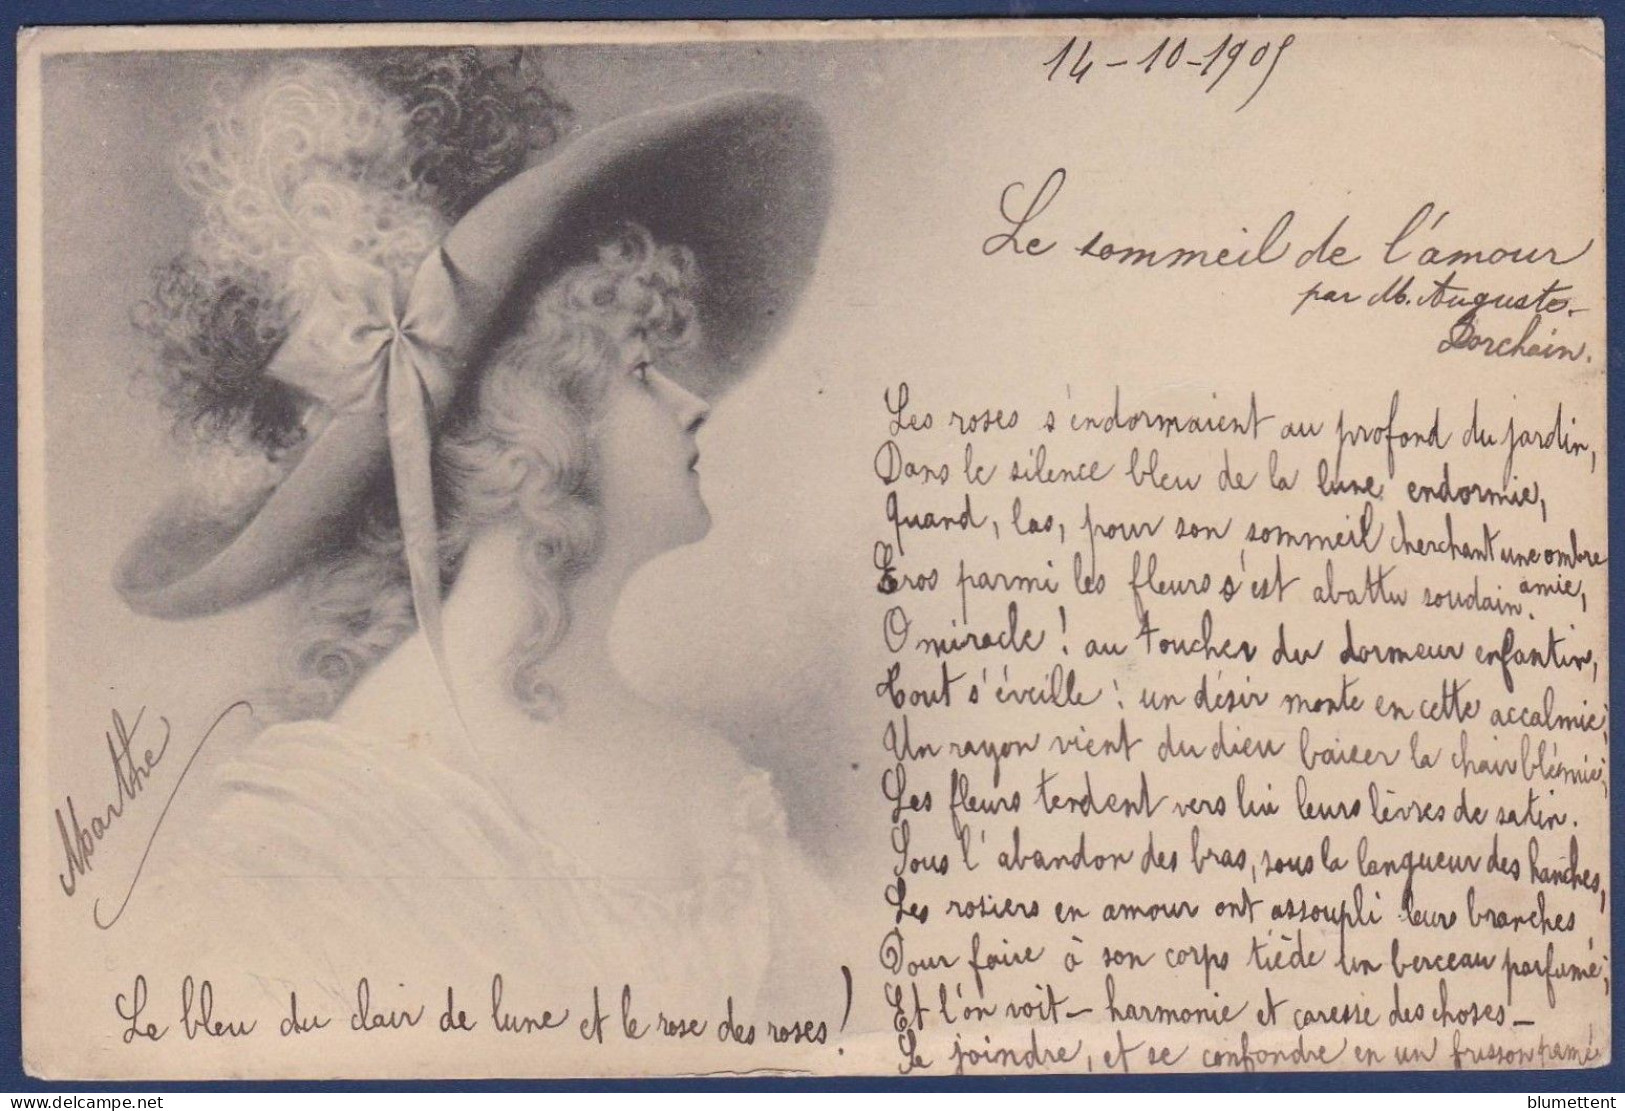 14-10-1905
Le sommeil de l'amour
par M. Auguste
Dorchain.
Les roses s'endormaient au profond du jardin,
Dans le silence bleu de la lune endormie,
Quand, las, pour son sommeil cherchant une ombre
amie,
Eros parmi les fleurs s'est abattu soudain.
O miracle ! au toucher du dormeur enfantin,
Tout s'éveille ; un désir monte en cette accalmie ;
Un rayon vient du dieu baiser la chair blémie ;
Les fleurs tendent vers lui leurs lèvres de satin.
Sous l'abandon des bras, sous la langueur des hanches,
Les rosiers en amour ont assoupli leurs branches
Pour faire à son corps tiède un berceau parfumé ;
Et l'on voit - harmonie et caresse des choses -
Se joindre, et se confondre en un frisson pamé
Le bleu du clair de lune et le rose des roses !
Marthe
delcampe.net
blumettent